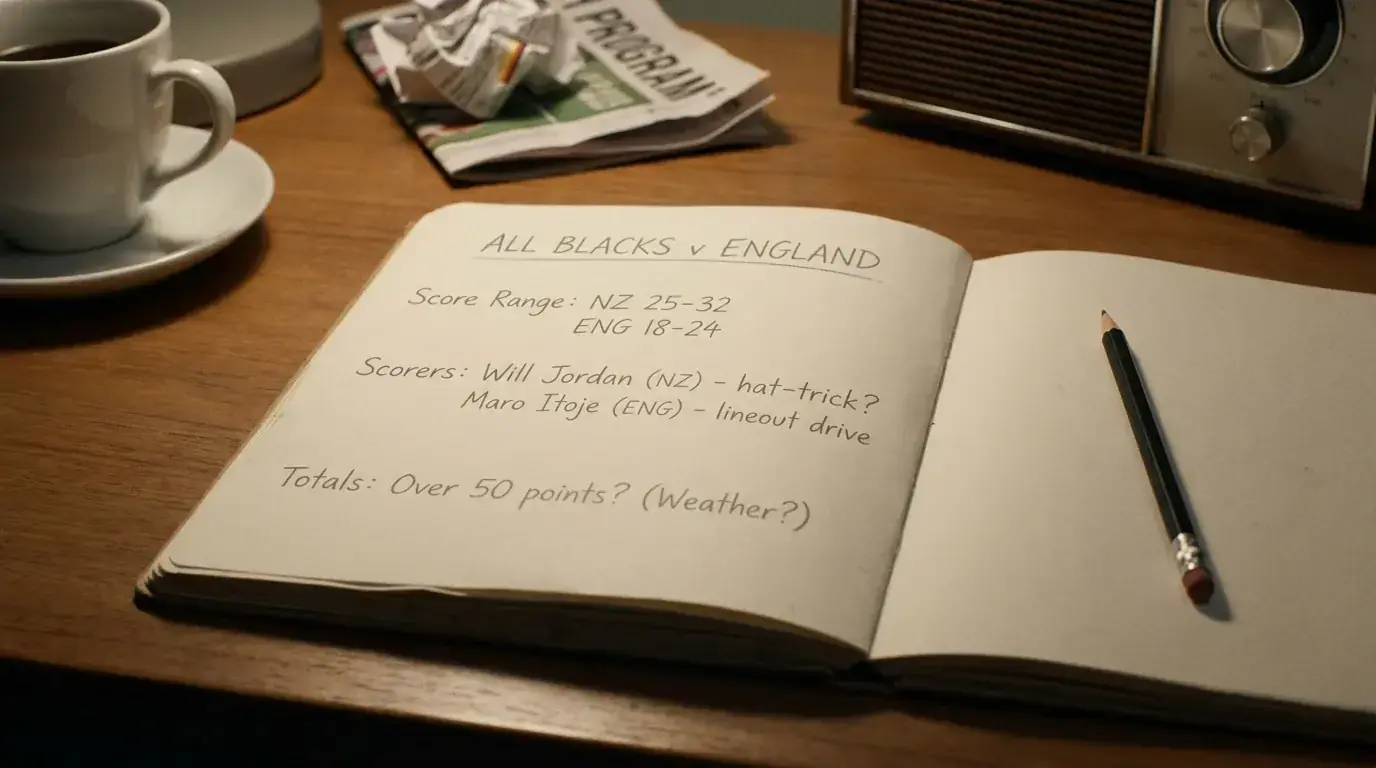 PROGRAM
ALL BLACKS v ENGLAND
Score Range: NZ 25-32
ENG 18-24
Scorers: Will Jordan (NZ) - hat-trick?
Maro Itoje (ENG) - lineout drive
Totals: Over 50 points? (Weather?)